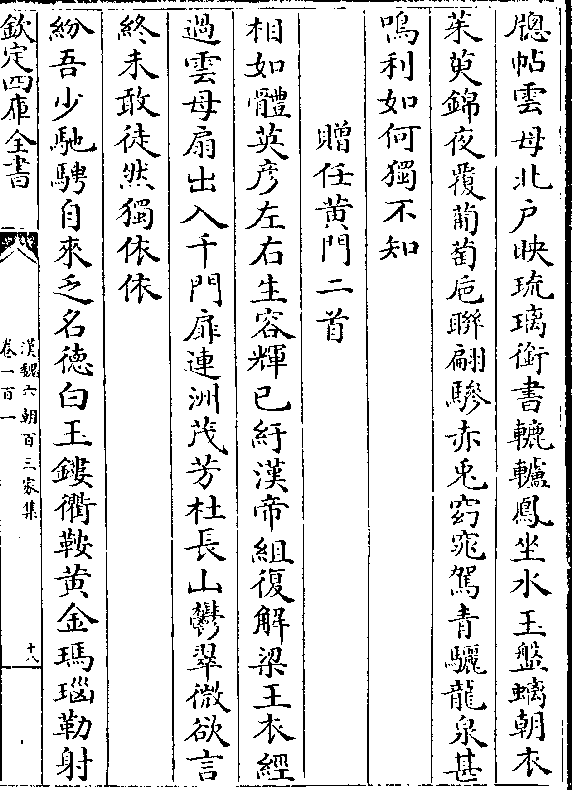 牕帖雲母北户映琉璃銜書轆轤鳳坐水玉盤螭朝衣
茱萸錦夜覆葡萄巵聯翩驂赤兎窈窕駕青驪龍泉甚
鳴利如何獨不知
贈任黄門二首
相如體英彦左右生容輝已紆漢帝組復解梁王衣經
過雲母扇出入千門扉連洲茂芳杜長山鬱翠微欲言
終未敢徒然獨依依
紛吾少馳騁自來乏名徳白玉鏤衢鞍黄金瑪瑙勒射
欽定四庫全書
漢魏六朝百三家集
卷一百一
十八